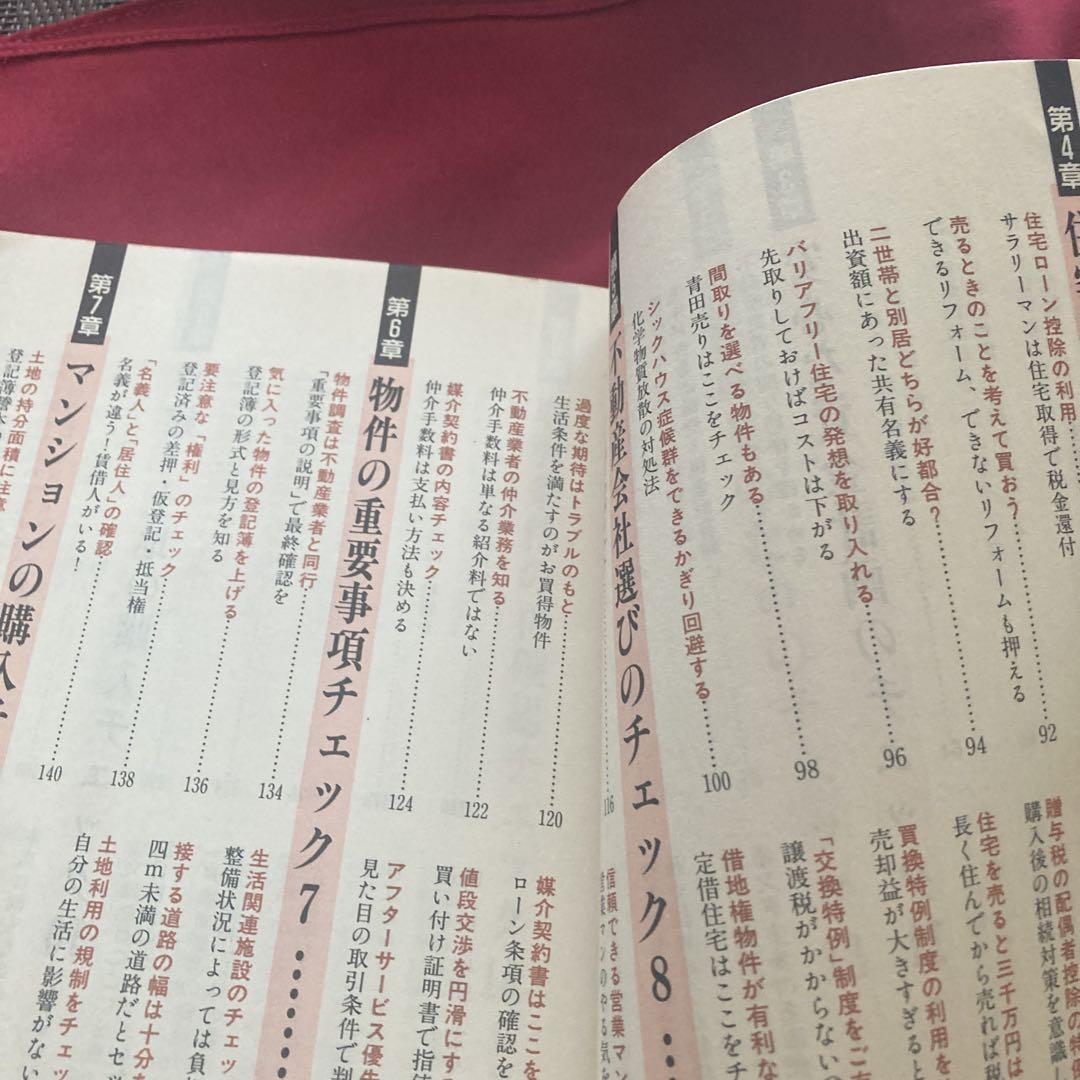 第4章
住宅ローン控除の利用
サラリーマンは住宅取得で税金還付
92
売るときのことを考えて買おう?
できるリフォーム、できないリフォームも押える
94
二世帯と別居どちらが好都合?
出資額にあった共有名義にする
96
バリアフリー住宅の発想を取り入れる
先取りしておけばコストは下がる
98
間取りを選べる物件もある
青田売りはここをチェック
100
シックハウス症候群をできるかぎり回避する
化学物質放散の対処法
贈与税の配偶者控除の特例
購入後の相続対策を意識し
住宅を売ると三千万円は
長く住んでから売れば税
買換特例制度の利用を
売却益が大きすぎると
「交換特例」制度をご
譲渡税がかからない
借地権物件が有利な
定借住宅はここをチ
不動産会社選びのチェック8
116
過度な期待はトラブルのもと
生活条件を満たすのがお買得物件
120
不動産業者の仲介業務を知る
仲介手数料は単なる紹介料ではない
122
媒介契約書の内容チェック
仲介手数料は支払い方法も決める
124
信頼できる営業マン
営業マンのやる気を
媒介契約書はここを
ローン条項の確認を
値段交渉を円滑にす
買い付け証明書で指値
アフターサービス優先
見た目の取引条件で判
第6章
物件の重要事項チェック7
物件調査は不動産業者と同行
「重要事項の説明」で最終確認を
134
気に入った物件の登記簿を上げる
登記簿の形式と見方を知る
136
要注意な「権利」のチェック
登記済みの差押・仮登記・抵当権
138
「名義人」と「居住人」の確認
名義が違う!賃借人がいる!
140
生活関連施設のチェッ
整備状況によっては負
接する道路の幅は十分
四m未満の道路だとセッ
土地利用の規制をチェッ
自分の生活に影響がない
第7章
マンションの購入チ
土地の持分面積に注意
登記簿謄本の